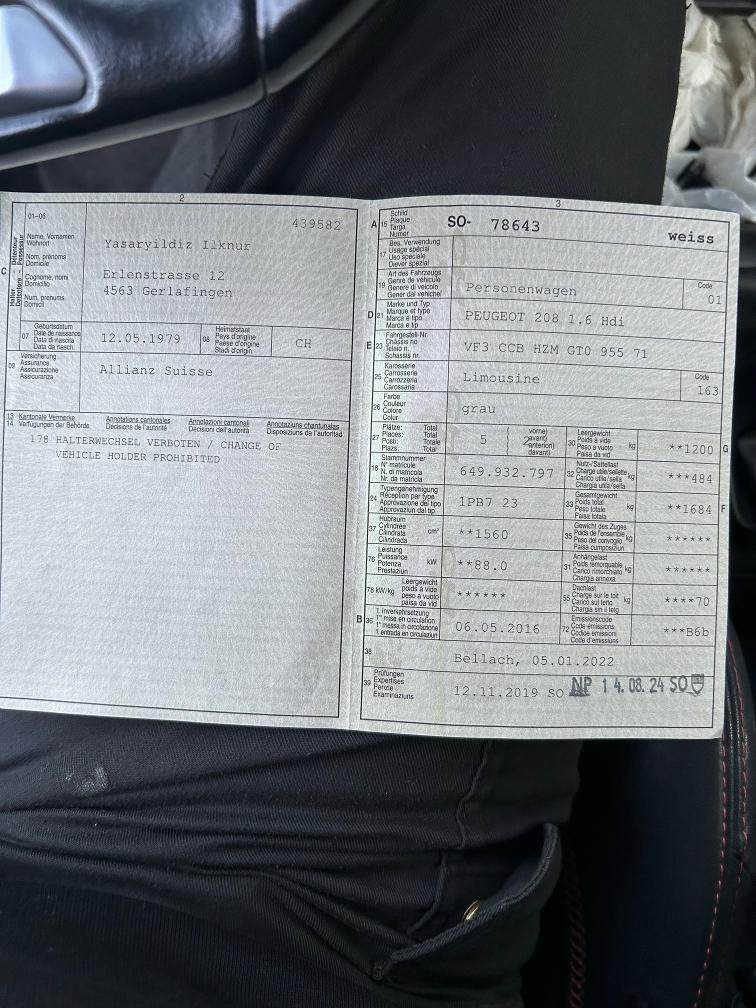 2
01-06
439582
C
Name, Vornamen
Wohnort
Nom, prénoms
Domicile
Cognome, nomi
Domicilio
Num, prenums
Domicil
Yasaryildiz Ilknur
Erlenstrasse 12
4563 Gerlafingen
07
Geburtsdatum
Date de naissance
Data di nascita
Data da nasch.
12.05.1979
08
Heimatstaat
Pays d'origine
Paese d'origine
Stadi d'origin
CH
09
Versicherung
Assurance
Assicurazione
Assicuranza
Allianz Suisse
13 Kantonale Vermerke
14 Verfügungen der Behörde
Annotations cantonales
Décisions de l'autorité
Annotazioni cantonali
Decisioni dell'autorità
Annotaziuns chantunalas
Disposiziuns da l'autoritad
178 HALTERWECHSEL VERBOTEN / CHANGE OF
VEHICLE HOLDER PROHIBITED
3
A 15
Schild
Plaque
Targa
Numer
SO- 78643
weiss
17
Bes. Verwendung
Usage spécial
Uso speciale
Diever spezial
19
Art des Fahrzeugs
Genre de véhicule
Genere di veicolo
Gener dal vehichel
Personenwagen
Code
01
D 21
Marke und Typ
Marque et type
Marca e tipo
Marca e tip
PEUGEOT 208 1.6 Hdi
E 23
Fahrgestell-Nr.
Châssis no
Telaio n.
Schassis nr.
VF3 CCB HZM GT0 955 71
25
Karosserie
Carrosserie
Carrozzeria
Carossaria
Limousine
Code
163
26
Farbe
Couleur
Colore
Colur
grau
27
Plätze: Total
Places: Total
Posti: Totale
Plazs: Total
5
vorne)
avant)
anteriori)
davant)
30
Leergewicht
Poids à vide
Peso a vuoto
Paisa da vid
kg
**1200
G
18
Stammnummer
N° matricule
N. di matricola
Nr. da matricla
649.932.797
32
Nutz-/Sattellast
Charge utile/sellette
Carico utile/sella
Chargia utila/sella
kg
***484
24
Typengenehmigung
Réception par type
Approvazione del tipo
Approvaziun dal tip
1PB7 23
33
Gesamtgewicht
Poids total
Peso totale
Paisa totala
kg
**1684
F
37
Hubraum
Cylindrée
Cilindrata
Cilindrada
cm³
**1560
35
Gewicht des Zuges
Poids de l'ensemble
Peso del convoglio
Paisa cumposiziun
kg
******
76
Leistung
Puissance
Potenza
Prestaziun
kW
**88.0
31
Anhängelast
Poids remorquable
Carico rimorchiato
Chargia annexa
kg
******
78 kW/kg
Leergewicht
poids à vide
peso a vuoto
paisa da vid
******
55
Dachlast
Charge sur le toit
Carico sul tetto
Chargia sin il tetg
kg
****70
B 36
1. Inverkehrsetzung
1re mise en circulation
1a messa in circolazione
1. entrada en circulaziun
06.05.2016
72
Emissionscode
Code émissions
Codice emissioni
Code d'emissiuns
***B6b
38
Bellach, 05.01.2022
39
Prüfungen
Expertises
Perizie
Examinaziuns
12.11.2019 SO
NP 14. 08. 24 SO